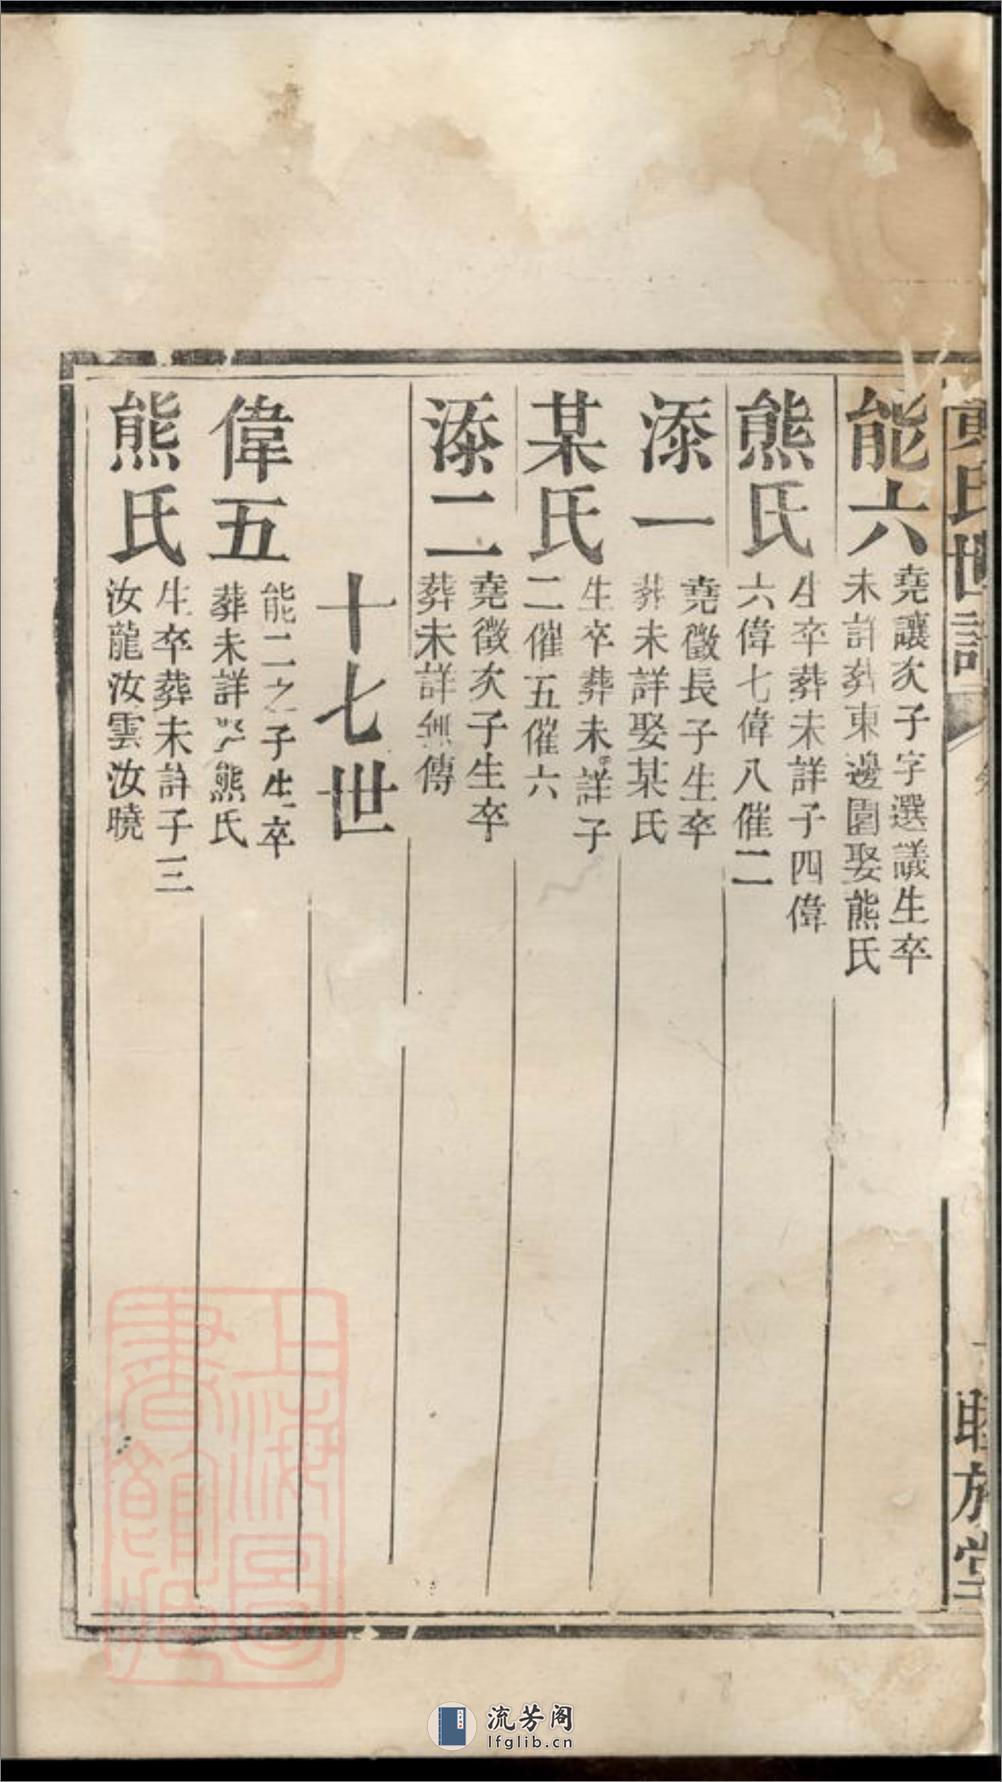 氏世譜
睦族堂
能六
堯讓次子字選議生卒
未詳葬東邊園娶熊氏
熊氏
生卒葬未詳子四偉
六偉七偉八催二
添一
堯徵長子生卒
葬未詳娶某氏
某氏
生卒葬未詳子
二催五催六
添二
堯徵次子生卒
葬未詳無傳
十七世
偉五
能二之子生卒
葬未詳娶熊氏
熊氏
生卒葬未詳子三
汝龍汝雲汝曉
上海圖
書館藏
流芳阁
lfglib.cn